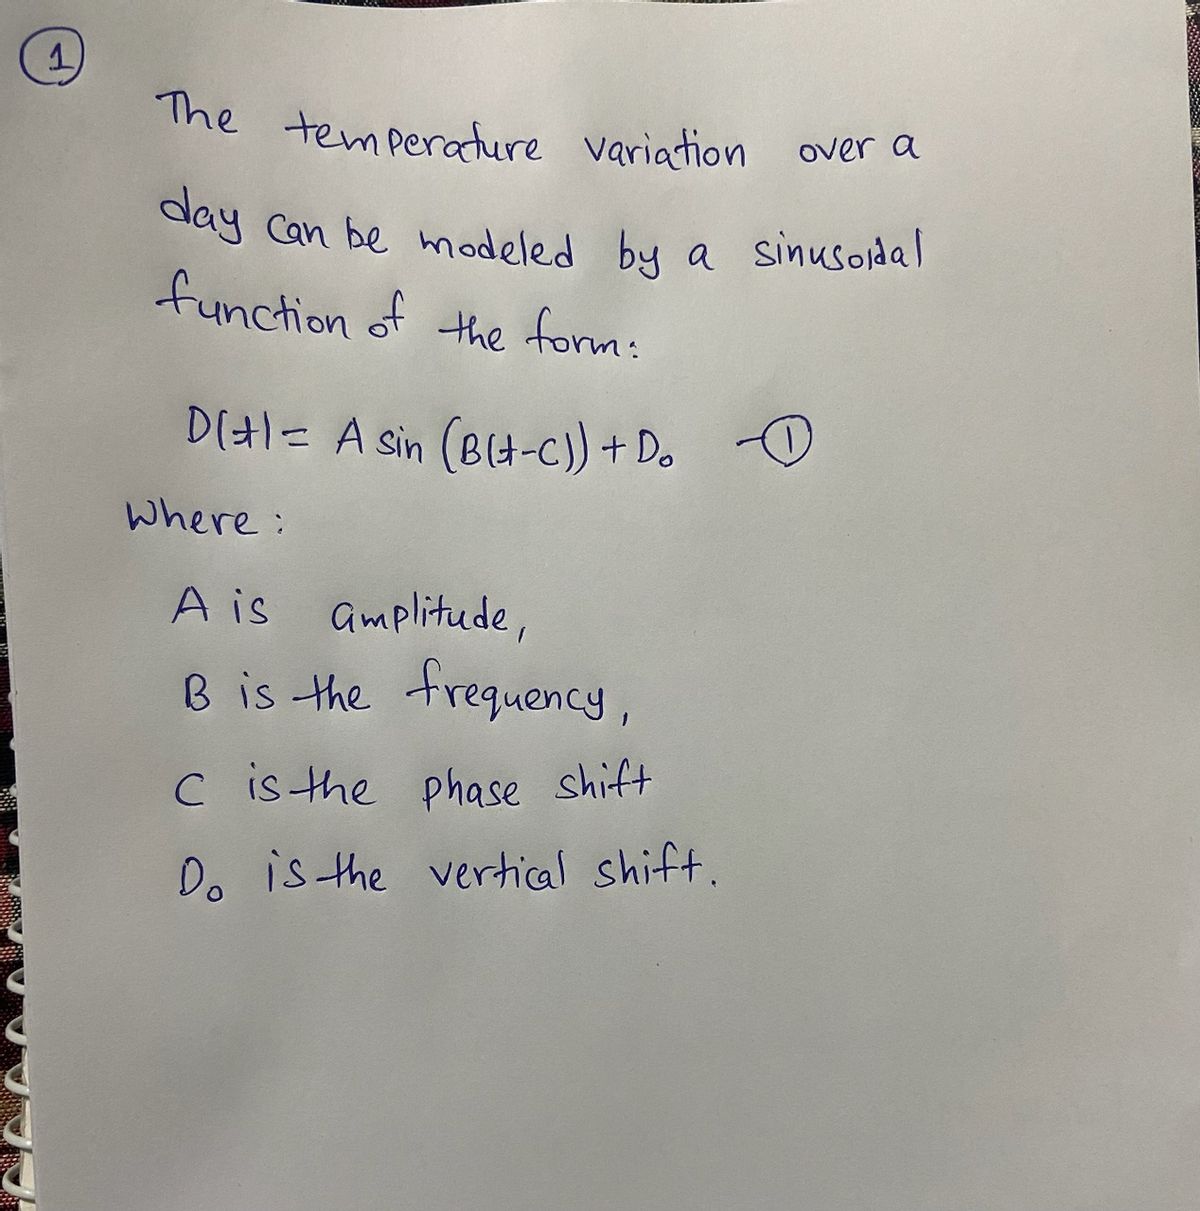 1
The temperature variation over a
day can be modeled by a sinusoidal
function of the form:
D(t)= A sin (B(t-C)) + D₀ -①
Where:
A is amplitude,
B is the frequency,
C is the phase shift
D₀ is the vertical shift.